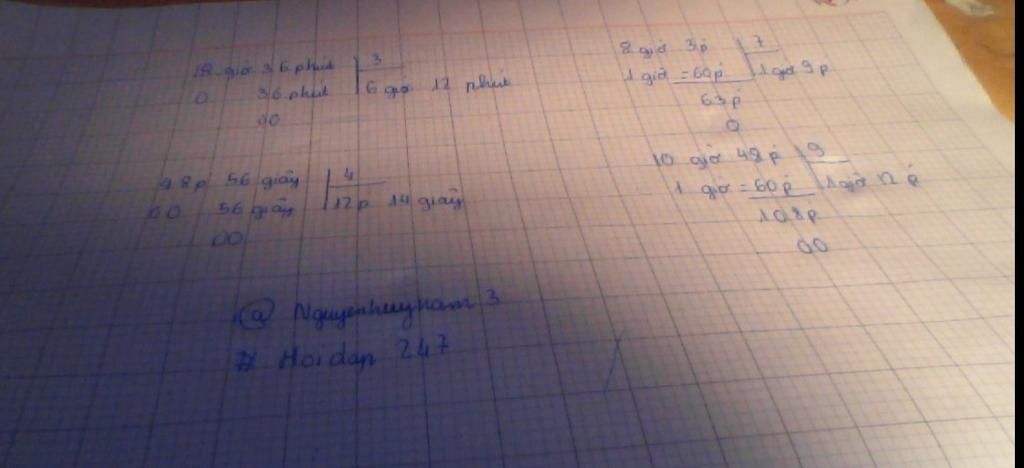 18 giờ 36 phút 3
0 36 phút 6 giờ 12 phút
00
8 giờ 3p 7
1 giờ = 60p 1 giờ 9p
63p
0
48p 56 giây 4
00 56 giây 12p 14 giây
00
10 giờ 48p 9
1 giờ = 60p 1 giờ 12p
108p
00
@ Nguyenhuynam 3
# Hoidap 247